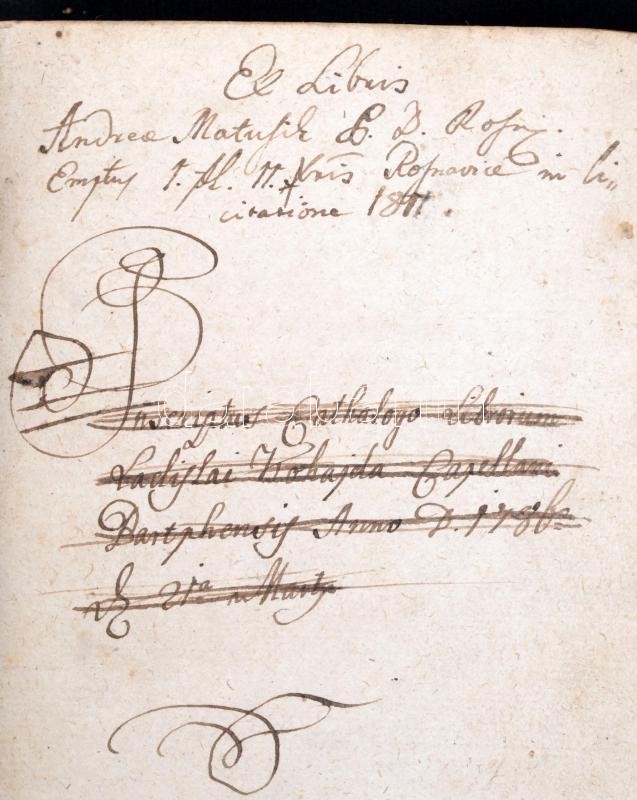 Ex Libris
Andreæ Matusik E. D. Rosn.
Emptus 1. fl. 11. Xris Rosnaviæ in li„
citatione 1811.
Inscriptus Cathalogo Librorum
Ladislai Hohajda Capellani
Bartphensis Anno D. 1786to
21a Marty
darabanth